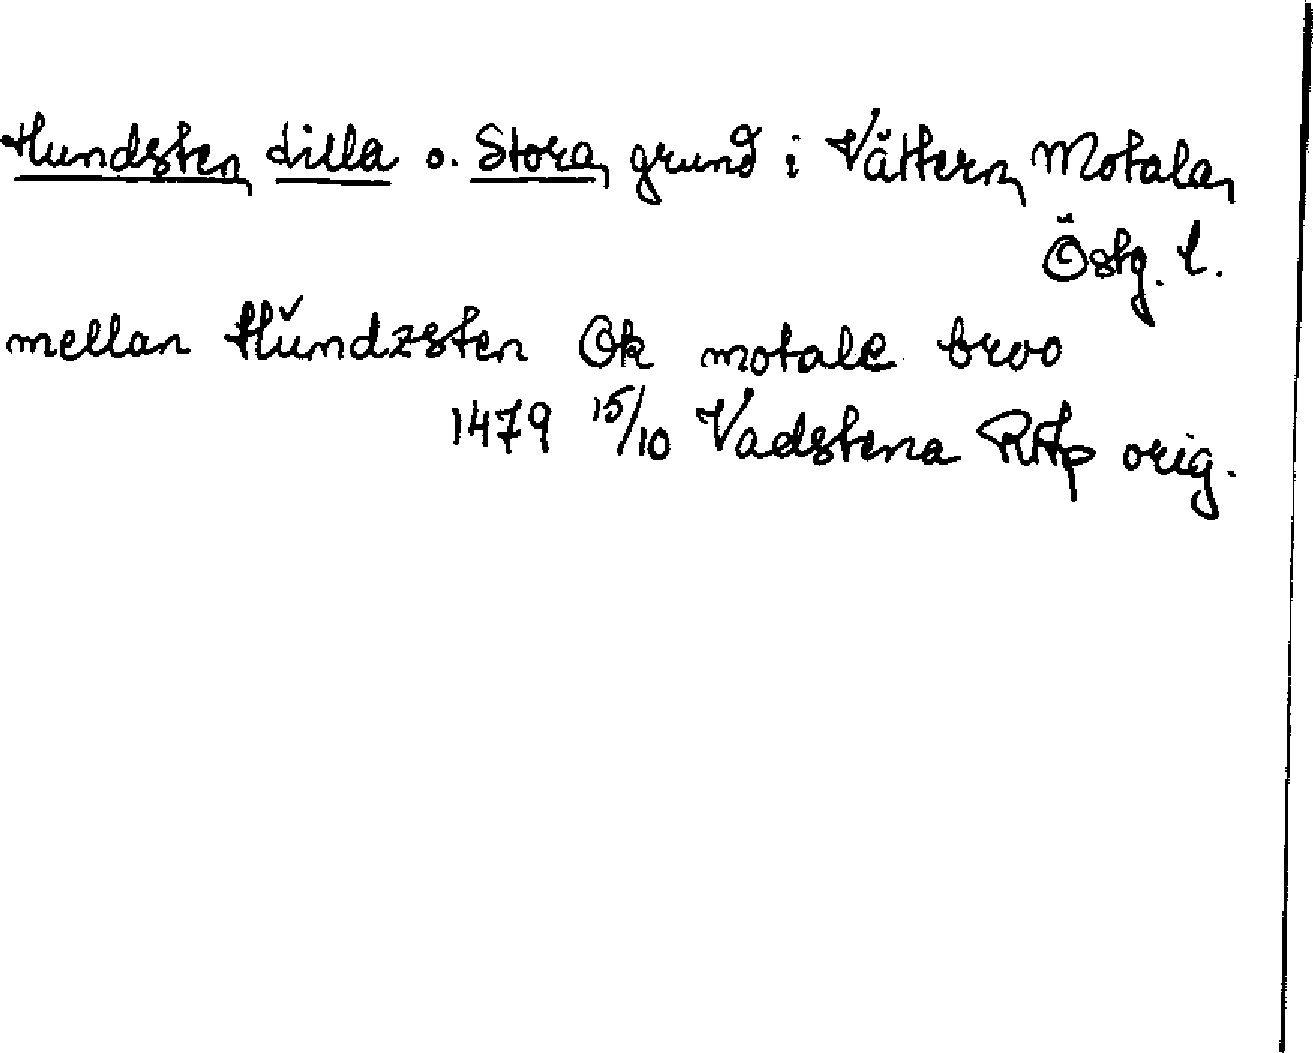 Hundsten, Lilla o. Stora, grund i Vättern, Motala,
Östg. l.
mellan Hŭndzsten Ok motale broo
1479 15/10 Vadstena RAp orig.